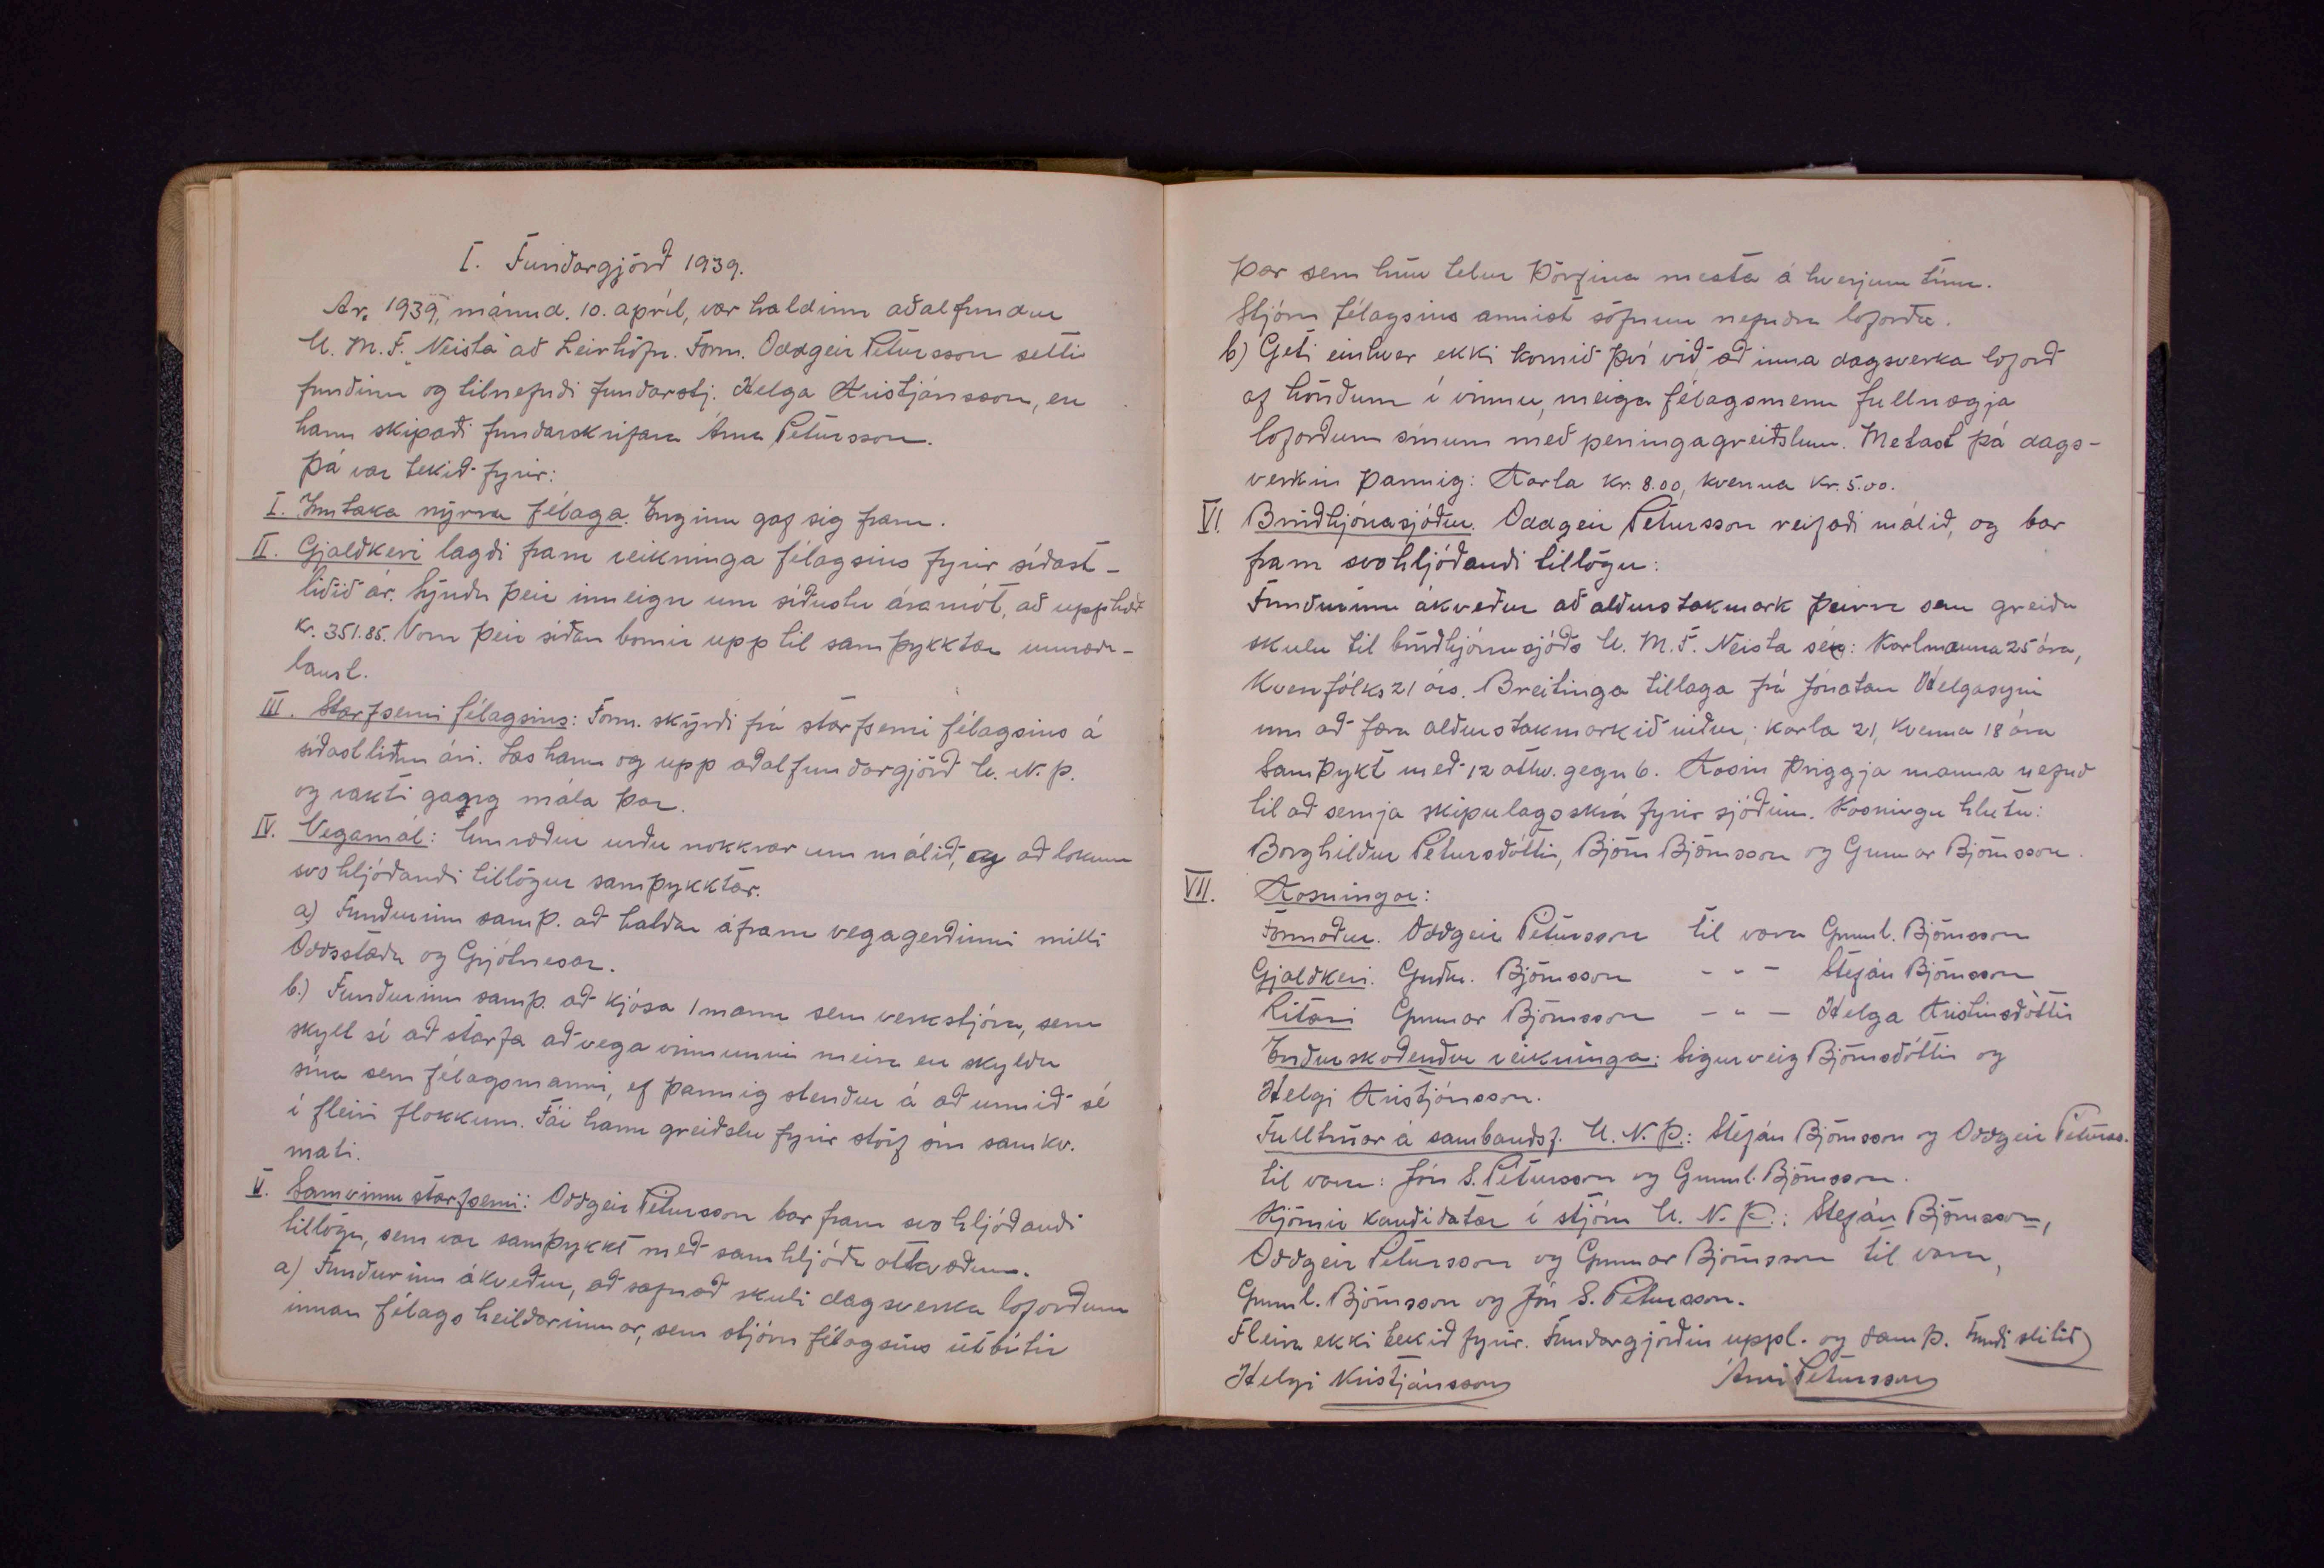 I. Fundargjörð 1939.
Ár. 1939, mánud. 10. apríl, var haldinn aðalfundur
U. M. F. „Neista" að Leirhöfn. Form. Oddgeir Pétursson setti
fundinn og tilnefndi fundarstj. Helga Kristjánsson, en
hann skipaði fundarskrifara Árna Pétursson.
Þá var tekið fyrir:
I. Inntaka nýrra félaga. Enginn gaf sig fram.
II. Gjaldkeri lagði fram reikninga félagsins fyrir síðast-
liðið ár. Sýndu þeir inneign um síðustu áramót, að upphæð
kr. 351.85. Voru þeir síðan bornir upp til samþykktar umræðu-
laust.
III. Starfsemi félagsins: Form. skýrði frá starfsemi félagsins á
síðastliðnu ári. Las hann og upp aðalfundargjörð U. N. Þ.
og rakti gang mála þar.
IV. Vegamál: Umræður urðu nokkrar um málið, og að lokum
svohljóðandi tillögur samþykktar.
a) Fundurinn samþ. að halda áfram vegagerðinni milli
Oddsstaða og Grjótnesar.
b.) Fundurinn samþ. að kjósa 1 mann sem verkstjóra, sem
skylt sé að starfa að vegavinnunni meira en skyldu
sína sem félagsmanni, ef þannig stendur á að unnið sé
í fleiri flokkum. Fái hann greiðslu fyrir störf sín samkv.
mati.
V. Samvinnu starfsemi: Oddgeir Pétursson bar fram svohljóðandi
tillögu, sem var samþykkt með samhljóða atkvæðum.
a) Fundurinn ákveður, að safnað skuli dagsverka loforðum
innan félagsheildarinnar, sem stjórn félagsins útbýtir
þar sem hún telur þörfina mesta á hverjum tíma.
Stjórn félagsins annist söfnun nefndra loforða.
b) Geti einhver ekki komið því við að inna dagsverka loforð
af höndum í vinnu, meiga félagsmenn fullnægja
loforðum sínum með peningagreiðslum. Metast þá dags-
verkin þannig: Karla kr. 8.00, kvenna kr. 5.00.
VI. Brúðhjónasjóður. Oddgeir Pétursson reifaði málið, og bar
fram svohljóðandi tillögu:
Fundurinn ákveður að aldurstakmark þeirra sem greiða
skulu til brúðhjónasjóðs U. M. F. Neista sé: Karlmanna 25 ára,
Kvenfólks 21 árs. Breitinga tillaga frá Jónatan Helgasyni
um að færa aldurstakmarkið niður; karla 21, kvenna 18 ára
Samþykt með 12 atkv. gegn 6. Kosin þriggja manna nefnd
til að semja skipulagsskrá fyrir sjóðinn. Kosningu hlutu:
Borghildur Pétursdóttir, Björn Björnsson og Gunnar Björnsson.
VII. Kosningar:
Formaður. Oddgeir Pétursson til vara Gunnl. Björnsson
Gjaldkeri. Guðm. Björnsson - „ - Stefán Björnsson
Ritari Gunnar Björnsson - „ - Helga Kristinsdóttir
Endurskoðendur reikninga: Sigurveig Björnsdóttir og
Helgi Kristjánsson.
Fulltrúar á sambandsf. U. N. Þ.: Stefán Björnsson og Oddgeir Péturss.
til vara: Jón S. Pétursson og Gunnl. Björnsson.
Kjörnir kandidatar í stjórn U. N. Þ.: Stefán Björnsson,
Oddgeir Pétursson og Gunnar Björnsson til vara,
Gunnl. Björnsson og Jón S. Pétursson.
Fleira ekki tekið fyrir. Fundargjörðin uppl. og samþ. Fundi slitið
Helgi Kristjánsson Árni Pétursson